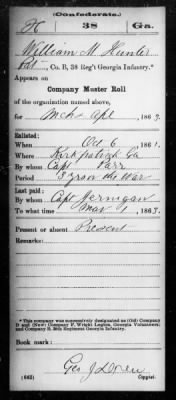 (Confederate.)
H 38 Ga.
William M Hunter
Pvt, Co. B, 38 Reg't Georgia Infantry.*
Appears on
Company Muster Roll
of the organization named above,
for Mch & Apl, 1863.
Enlisted:
When Oct 6, 1861.
Where Kirkpatrick Ga
By whom Capt Parr
Period 3 yrs or the War
Last paid:
By whom Capt Jernigan
To what time Mar 1, 1863.
Present or absent Present
Remarks:
*This company was successively designated as (Old) Company
D and (New) Company F, Wright Legion, Georgia Volunteers;
and Company B, 38th Regiment Georgia Infantry.
Book mark:
(642) Geo J Copyist.